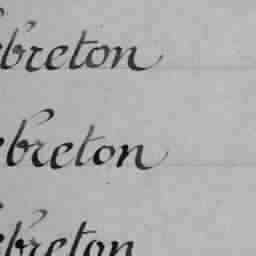 ebreton
ebreton
ebreton